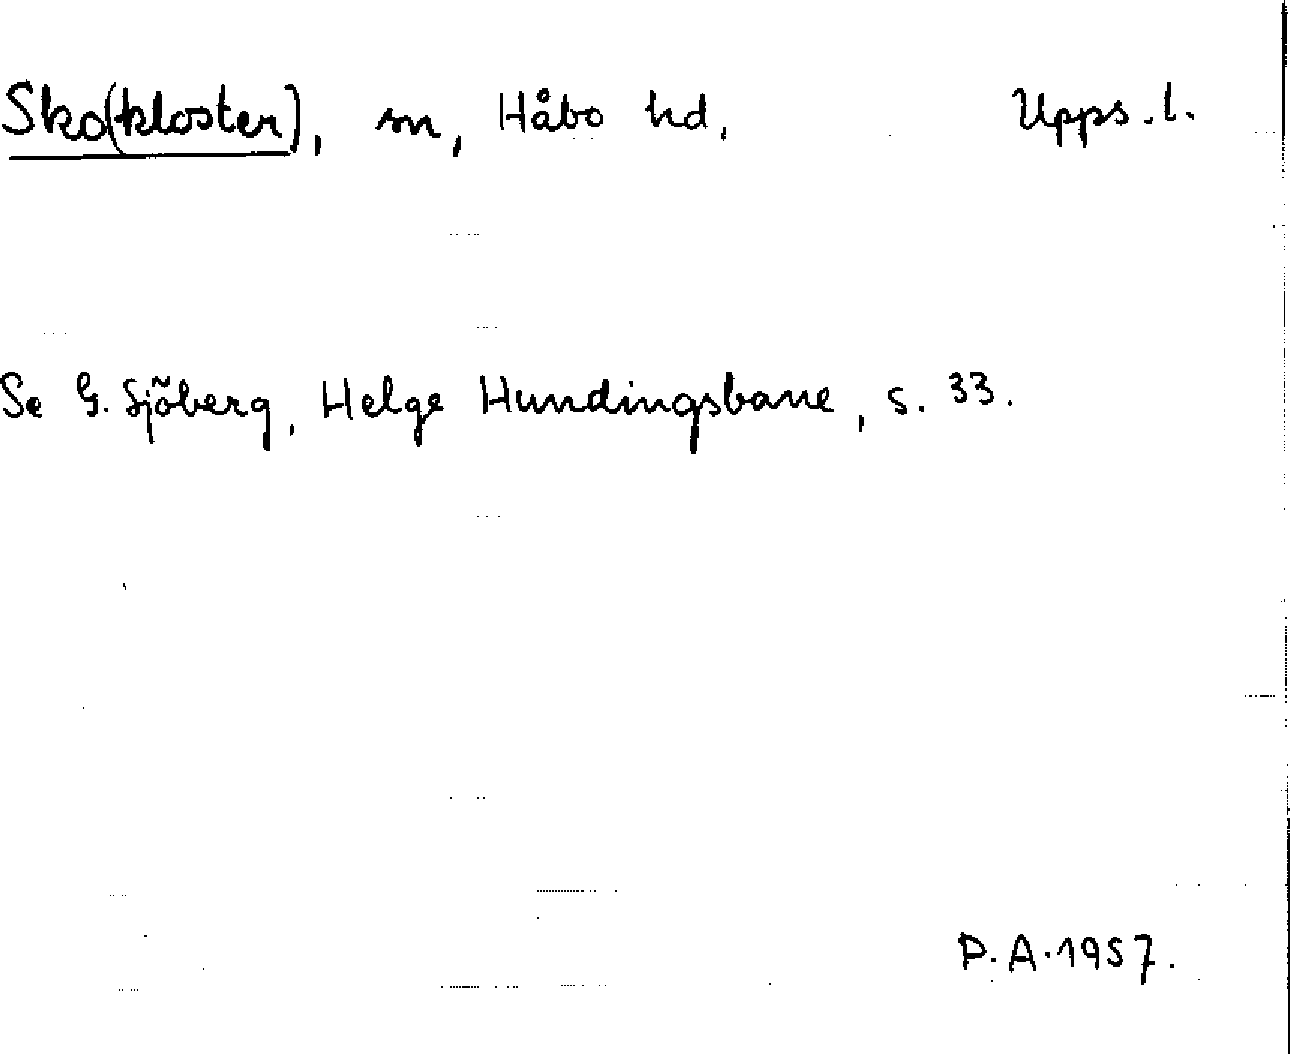 Sko(kloster), sn, Håbo hd, Upps. l.
Se G. Sjöberg, Helge Hundingsbane, s. 33.
P. A. 1957.